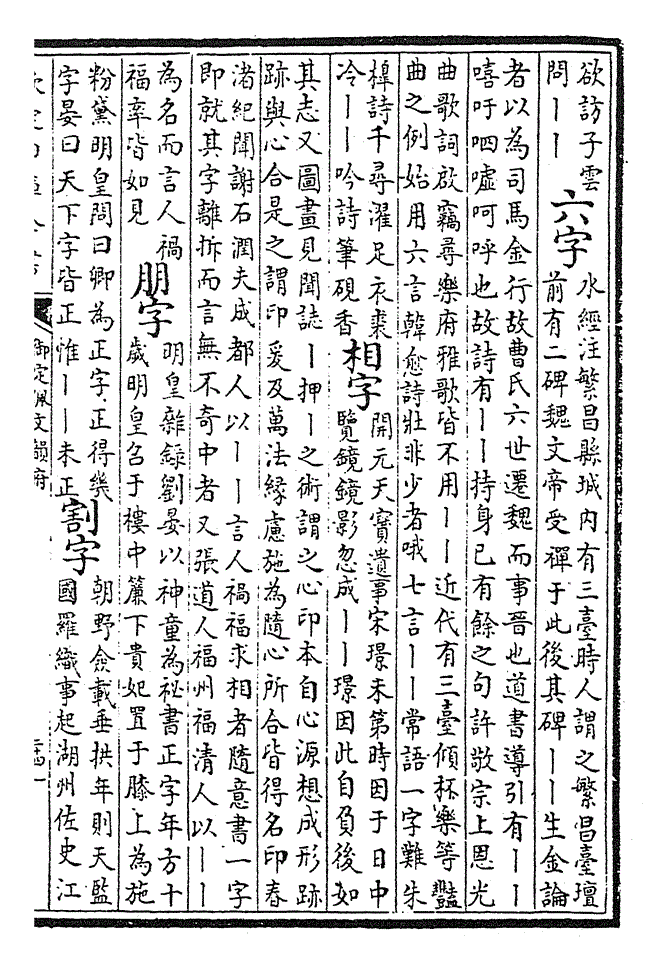 欲訪子雲
問丨丨
六字
水經注繁昌縣城内有三臺時人謂之繁昌臺壇
前有二碑魏文帝受禪于此後其碑丨丨生金論
者以為司馬金行故曹氏六世遷魏而事晉也道書導引有丨丨
嘻吁呬嘘呵呼也故詩有丨丨持身已有餘之句許敬宗上恩光
曲歌詞啟竊尋樂府雅歌皆不用丨丨近代有三臺傾杯樂等豔
曲之例始用六言韓愈詩壯非少者哦七言丨丨常語一字難朱
槔詩千尋濯足衣裘
冷丨丨吟詩筆硯香
相字
開元天寶遺事宋璟未第時因于日中
覽鏡鏡影忽成丨丨璟因此自負後如
其志又圖畫見聞誌丨押丨之術謂之心印本自心源想成形跡
跡與心合是之謂印爰及萬法縁慮施為隨心所合皆得名印春
渚紀聞謝石潤夫成都人以丨丨言人禍福求相者隨意書一字
即就其字離拆而言無不奇中者又張道人福州福清人以丨丨
為名而言人禍
福率皆如見
朋字
明皇雜録劉晏以神童為祕書正字年方十
歲明皇召于樓中簾下貴妃置于膝上為施
粉黛明皇問曰卿為正字正得幾
字晏曰天下字皆正惟丨丨未正
割字
朝野僉載垂拱年則天監
國羅織事起湖州佐史江
欽定四庫全書
御定佩文韻府